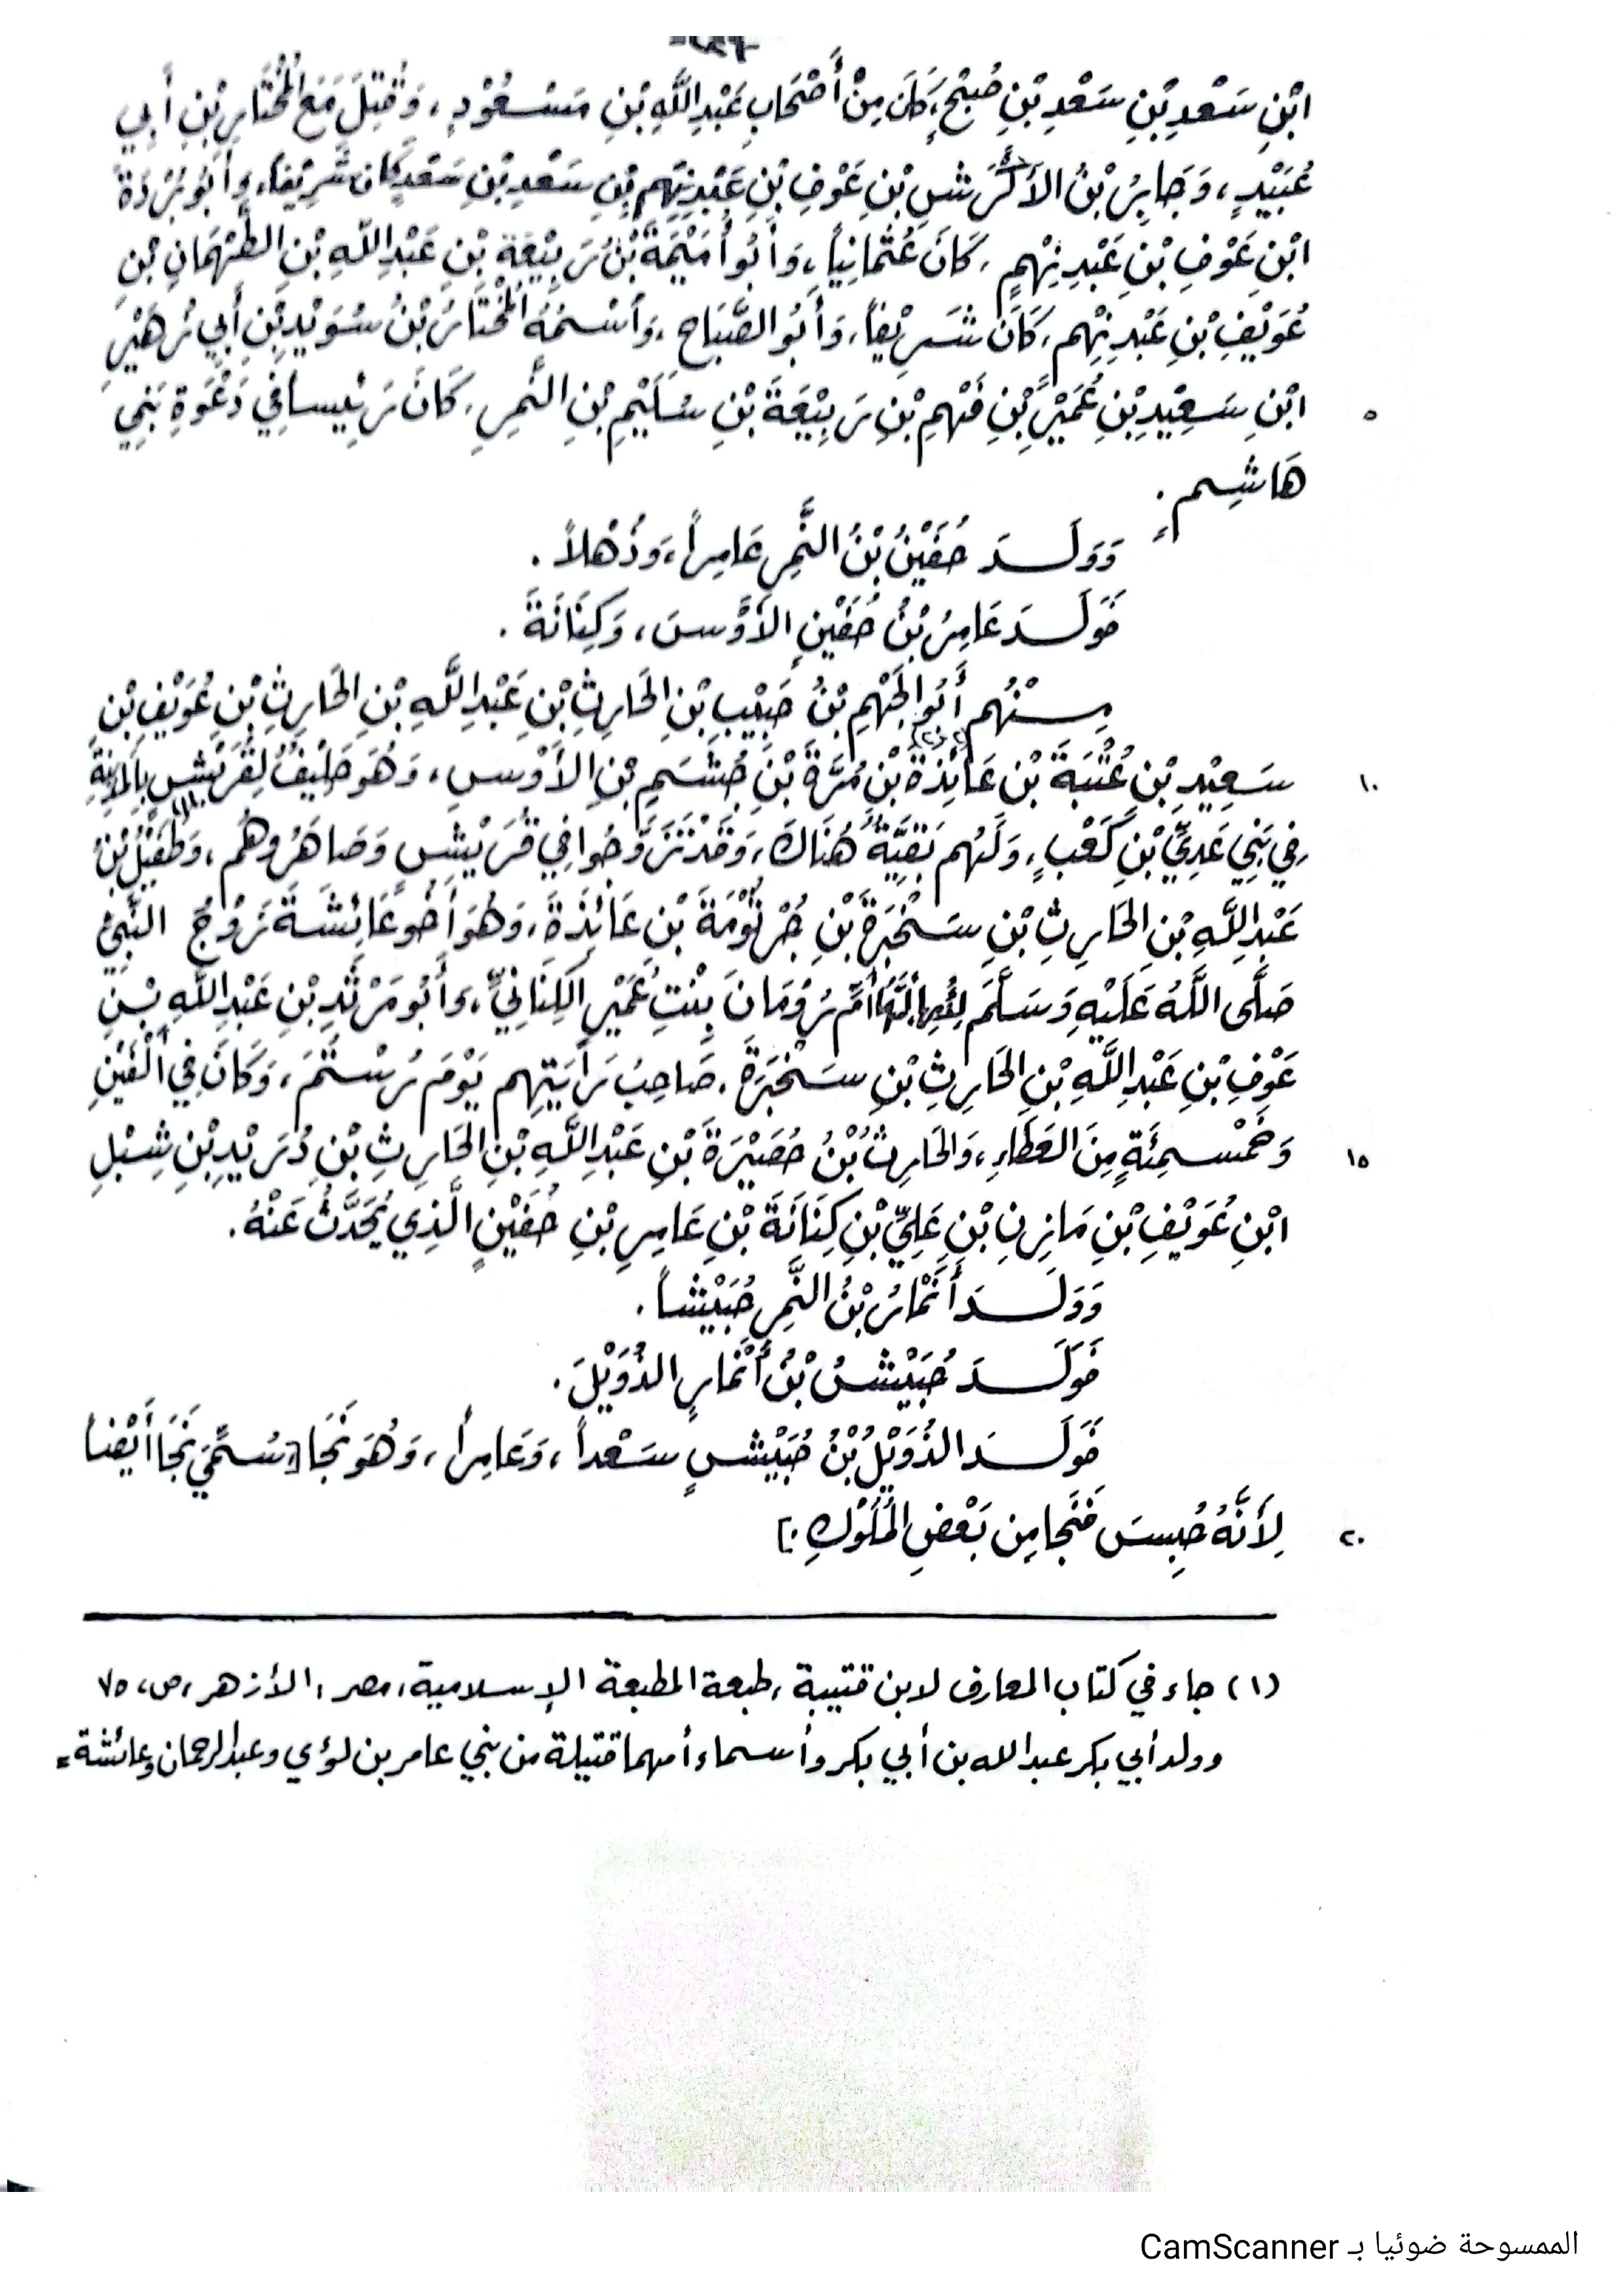 ابْنِ سَعْدِ بْنِ سَعْدِ بْنِ صُبْحٍ، كَانَ مِنْ أَصْحَابِ عَبْدِ اللَّهِ بْنِ مَسْعُوْدٍ، وَقُتِلَ مَعَ الْمُخْتَارِ بْنِ أَبِي
عُبَيْدٍ، وَجَابِرُ بْنُ الأَكْرَشِ بْنِ عَوْفِ بْنِ عَبْدِنِهْمِ بْنِ سَعْدِ بْنِ سَعْدٍ كَانَ شَرِيْفاً، وَأَبُو بُرْدَةَ
ابْنِ عَوْفِ بْنِ عَبْدِنِهْمٍ، كَانَ عُثْمَانِيّاً، وَأَبُو أُمَيْمَةَ بْنُ رَبِيْعَةِ بْنِ عَبْدِ اللهِ بْنِ الطَّهْمَانِ بْنِ
عُوَيْفِ بْنِ عَبْدِنِهْمٍ، كَانَ شَرِيْفاً، وَأَبُو الصَّبَاحِ، وَاسْمُهُ الْمُخْتَارُ بْنُ سُوَيْدِ بْنِ أَبِي زُهَيْرِ
٥ ابْنِ سَعِيْدِ بْنِ عُمَيْرِ بْنِ فَهْمِ بْنِ رَبِيْعَةَ بْنِ سُلَيْمِ بْنِ النَّمِرِ، كَانَ رَئِيساً فِي دَعْوَةِ بَنِي
هَاشِمٍ.
وَوَلَدَ حُفَيْنُ بْنُ النَّمِرِ عَامِراً، وَذُهْلاً.
فَوَلَدَ عَامِرُ بْنُ حُفَيْنٍ الأَوْسَ، وَكِنَانَةَ.
مِنْهُم أَبُو الجَهْمِ بْنُ حَبِيْبِ بْنِ الحَارِثِ بْنِ عَبْدِ اللَّهِ بْنِ الحَارِثِ بْنِ عُوَيْفِ بْنِ
١٠ سَعِيْدِ بْنِ عُتْبَةَ بْنِ عَائِذَةَ بْنِ مُرَّةَ بْنِ جُشَمِ بْنِ الأَوْسِ، وَهُوَ حَلِيْفٌ لِقُرَيْشٍ بِالْمَدِيْنَةِ
فِي بَنِي عَدِيِّ بْنِ كَعْبٍ، وَلَهُم بَقِيَّةٌ هُنَاكَ، وَقَدْ تَزَوَّجُوا فِي قُرَيْشٍ وَصَاهَرُوهُم، وَطُفَيْلُ بْنُ (١)
عَبْدِ اللَّهِ بْنِ الحَارِثِ بْنِ سَخْبَرَةَ بْنِ جُرْثُوْمَةَ بْنِ عَائِذَةَ، وَهُوَ أَخُو عَائِشَةَ زَوْجِ النَّبِيِّ
صَلَّى اللَّهُ عَلَيْهِ وَسَلَّمَ لِأُمِّهَا أُمِّ رُوْمَانَ بِنْتِ عُمَيْرٍ الكِنَانِيِّ، وَأَبُو مَرْثَدِ بْنِ عَبْدِ اللهِ بْنِ
عَوْفِ بْنِ عَبْدِ اللَّهِ بْنِ الحَارِثِ بْنِ سَخْبَرَةَ، صَاحِبُ رَايَتِهِم يَوْمَ رُسْتُمَ، وَكَانَ فِي أَلْفَيْنِ
١٥ وَخَمْسِمِئَةٍ مِنَ العَطَاءِ، وَالحَارِثُ بْنُ حُصَيْرَةَ بْنِ عَبْدِ اللَّهِ بْنِ الحَارِثِ بْنِ دُرَيْدِ بْنِ شِبْلِ
ابْنِ عُوَيْفِ بْنِ مَازِنِ بْنِ عَلِيِّ بْنِ كِنَانَةَ بْنِ عَامِرِ بْنِ حُفَيْنٍ الَّذِي يُحَدَّثُ عَنْهُ.
وَوَلَدَ أَنْمَارُ بْنُ النَّمِرِ حُبَيْشاً.
فَوَلَدَ حُبَيْشُ بْنُ أَنْمَارٍ الذُّوَيْلَ.
فَوَلَدَ الذُّوَيْلُ بْنُ حُبَيْشٍ سَعْداً، وَعَامِراً، وَهُوَ نَجَا [سُمِّيَ نَجَا أَيْضاً
٢٠ لِأَنَّهُ حُبِسَ فَنَجَا مِن بَعْضِ الْمُلُوْكِ.]
(١) جاء في كتاب المعارف لابن قتيبة، طبعة المطبعة الإسلامية، مصر، الأزهر، ص، ٧٥
وولد أبي بكر عبد الله بن أبي بكر وأسماء أمهما قتيلة من بني عامر بن لؤي وعبد الرحمان وعائشة =
الممسوحة ضوئيا بـ CamScanner